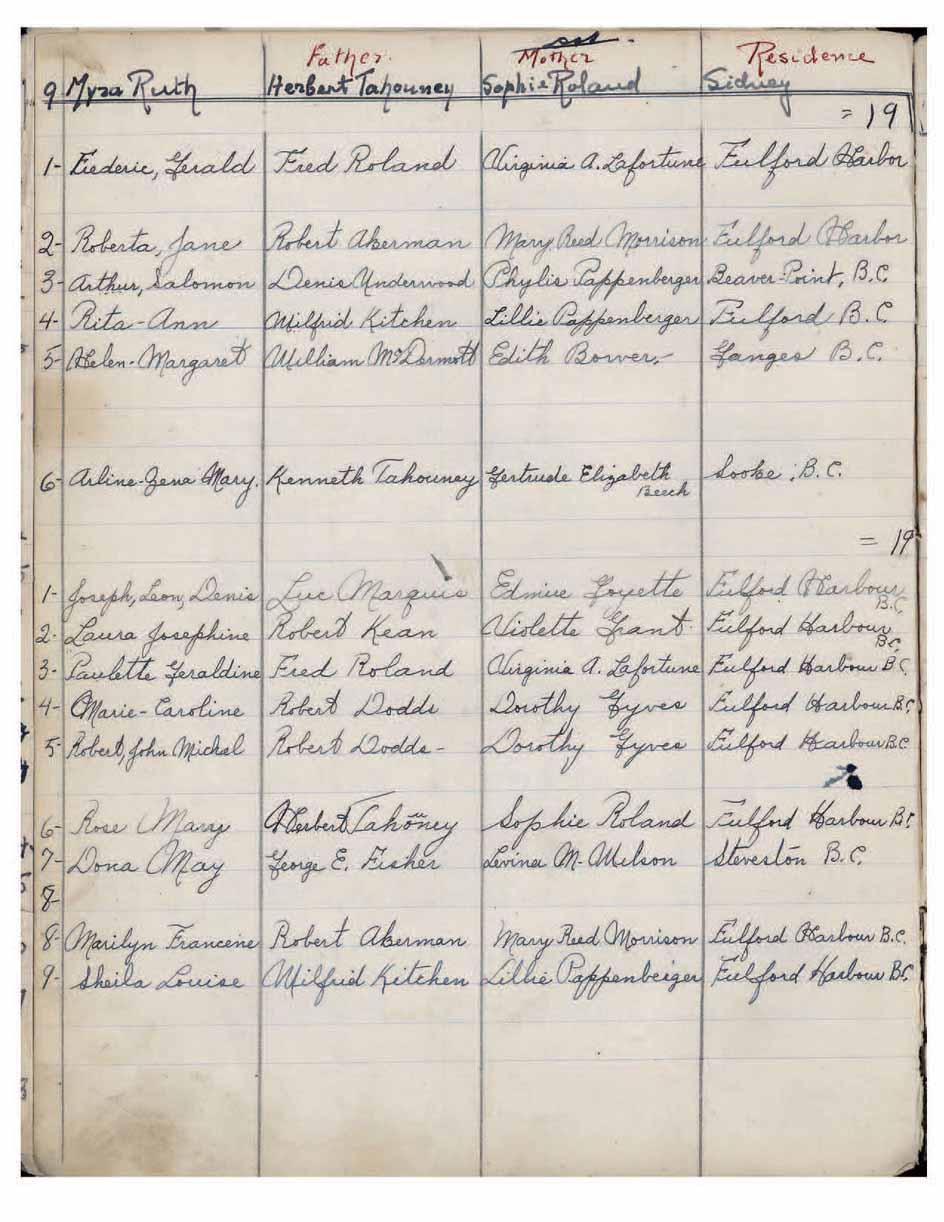 Father Mother Residence
9 Myra Ruth Herbert Tahouney Sophie Roland Sidney
= 19
1- Frederic, Gerald Fred Roland Virginia A. Lafortune Fulford Harbor
2- Roberta, Jane Robert Akerman Mary Reed Morrison Fulford Harbor
3- Arthur, Salomon Denis Underwood Phylis Pappenberger Beaver-Point, B.C.
4- Rita-Ann Wilfrid Kitchen Lillie Pappenberger Fulford B.C.
5- Helen-Margaret William McDermott Edith Bower.- Ganges B.C.
6- Arline-Zena Mary. Kenneth Tahouney Gertrude Elizabeth Sooke, B.C.
Beech
= 19
1- Joseph, Leon, Denis Luc Marquis Edmiee Goyette Fulford Harbour
B.C.
2- Laura Josephine Robert Kean Violette Grant. Fulford Harbour
B.C.
3- Paulette Geraldine Fred Roland Virginia A. Lafortune Fulford Harbour B.C.
4- Marie-Caroline Robert Dodds Dorothy Gyves Fulford Harbour B.C.
5- Robert, John Michel Robert Dodds- Dorothy Gyves Fulford Harbour B.C.
6- Rose Mary Herbert Tahoney Sophie Roland Fulford Harbour B.C.
7- Dona May George E. Fisher Levina M-Wilson Steveston B.C.
8-
8- Marilyn Francene Robert Akerman Mary Reed Morrison Fulford Harbour B.C.
9- Sheila Louise Wilfrid Kitchen Lillie Pappenberger Fulford Harbour B.C.